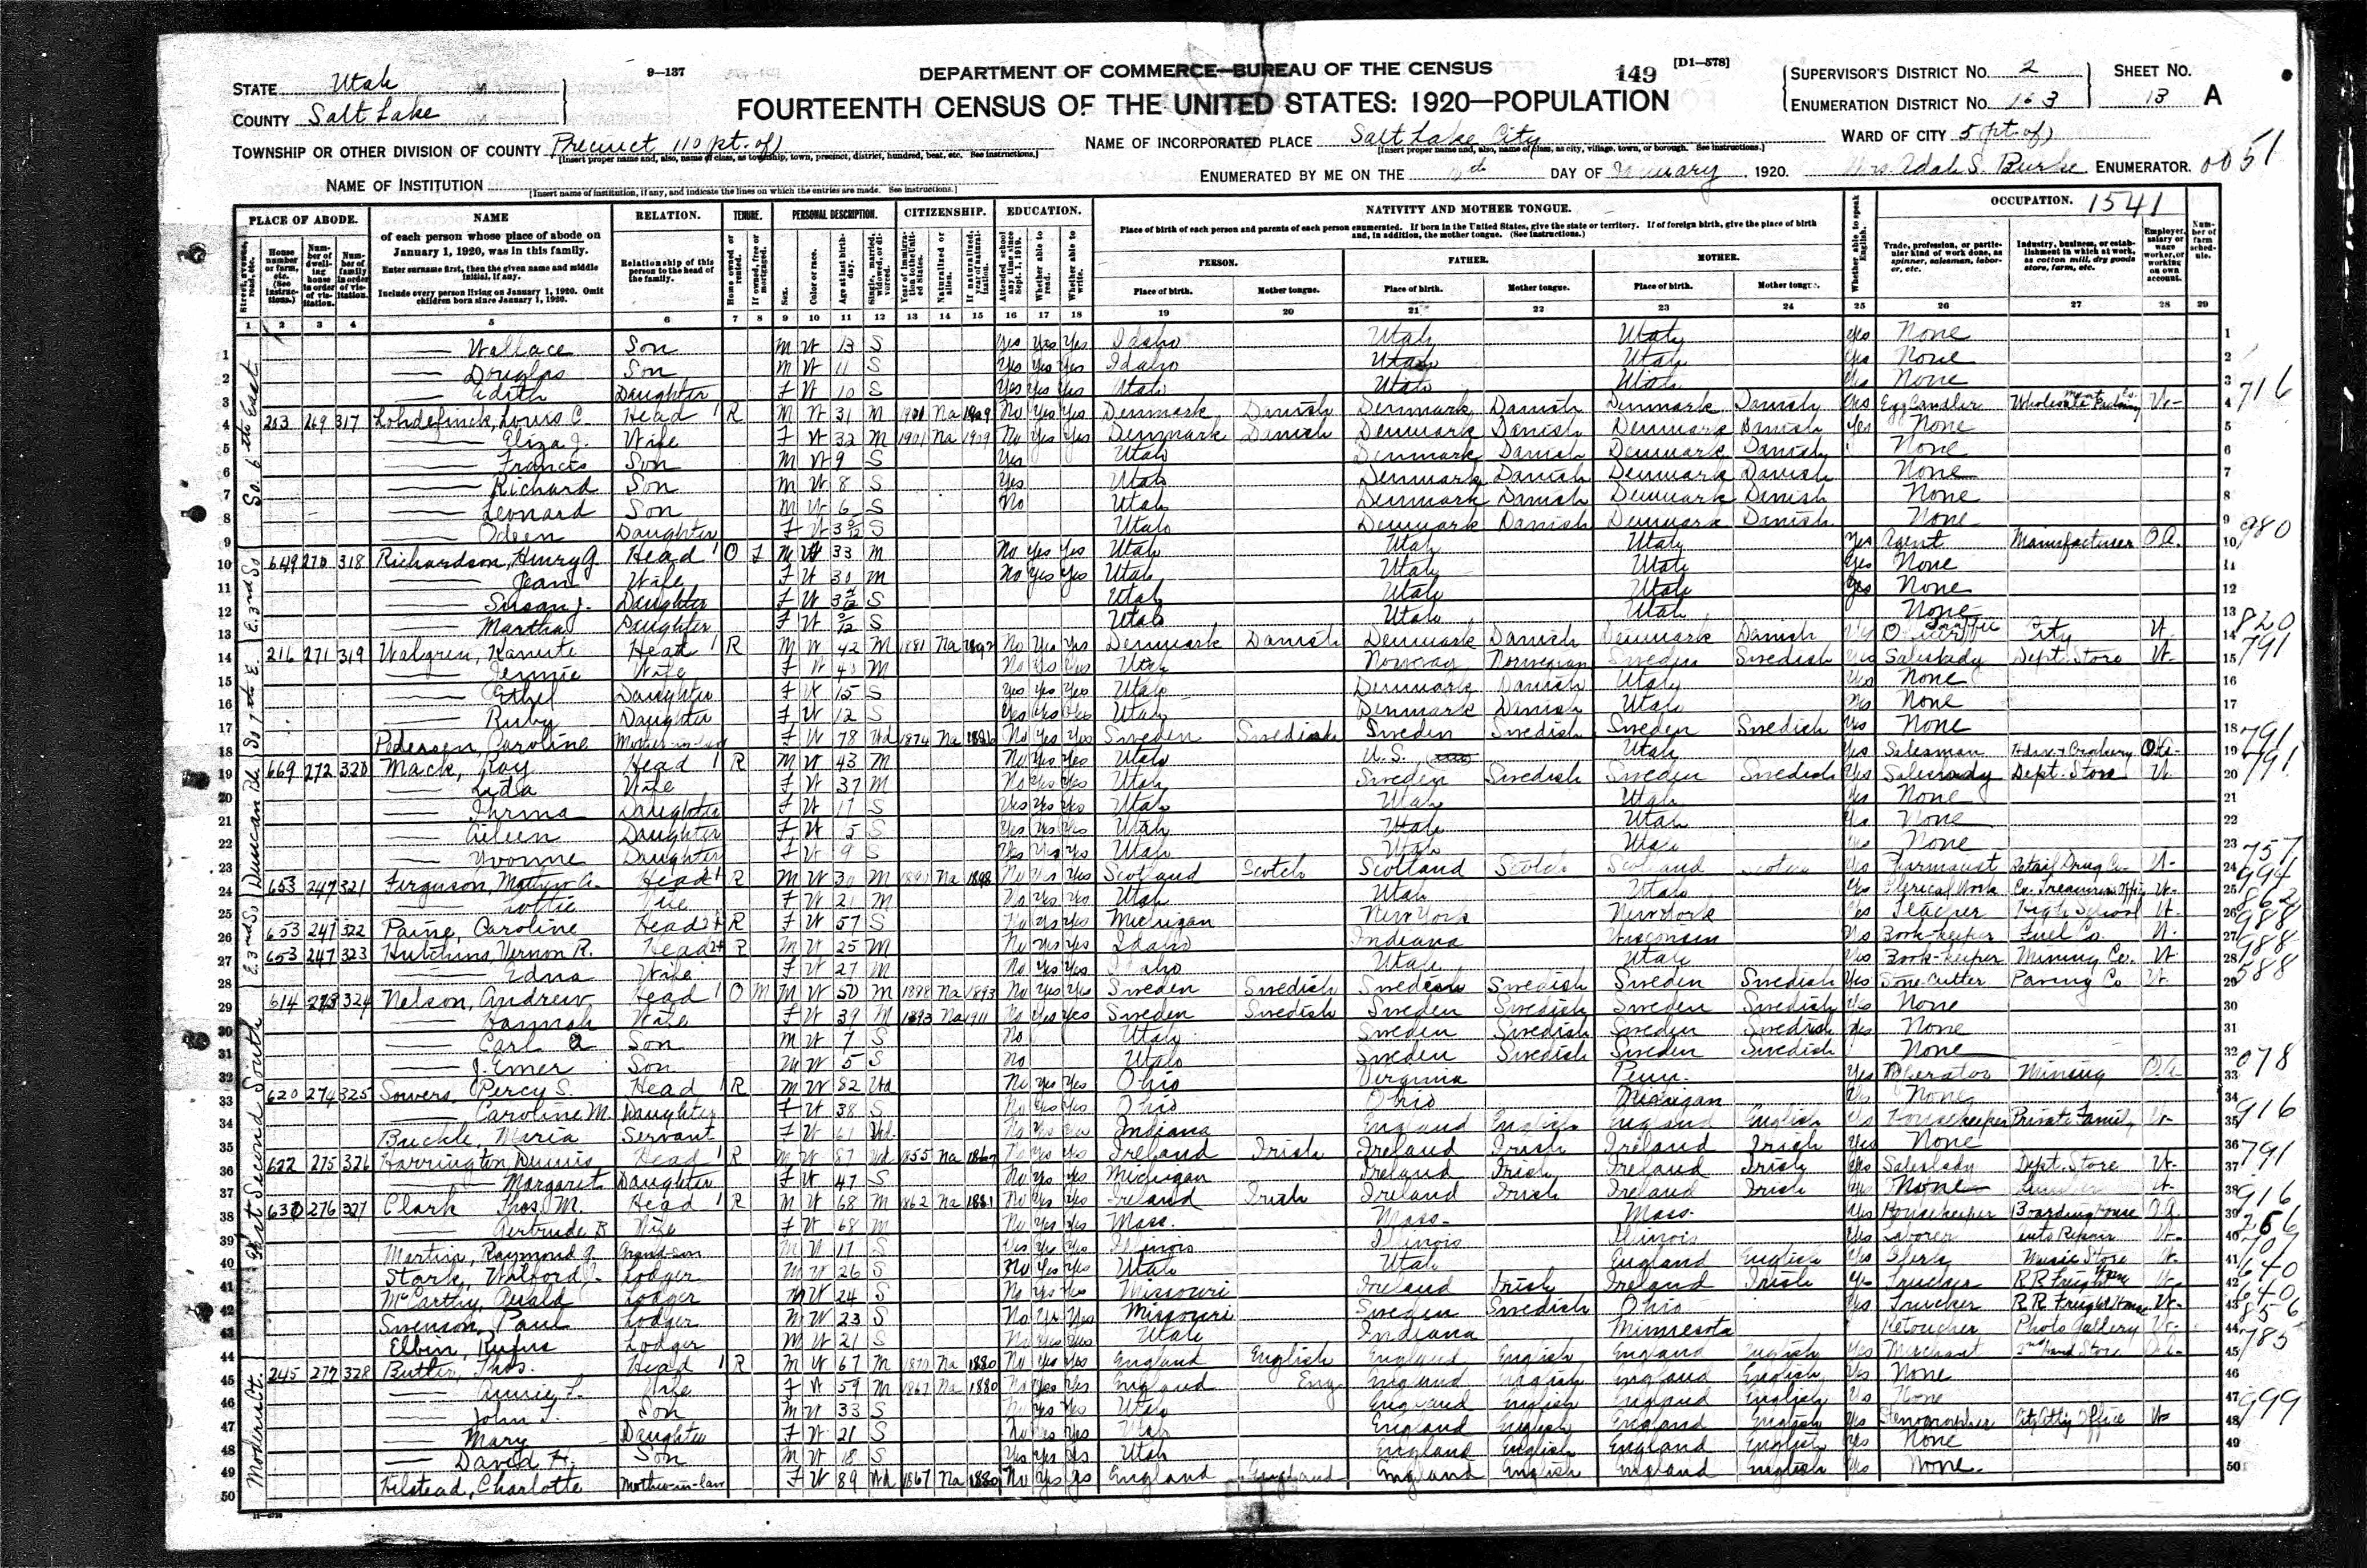 9—137
DEPARTMENT OF COMMERCE—BUREAU OF THE CENSUS
149 [D1—578]
FOURTEENTH CENSUS OF THE UNITED STATES: 1920—POPULATION
STATE Utah
COUNTY Salt Lake
SUPERVISOR'S DISTRICT No. 2 SHEET No.
ENUMERATION DISTRICT No. 163 13 A
TOWNSHIP OR OTHER DIVISION OF COUNTY Precinct 110 pt. of)
[Insert proper name and, also, name of class, as township, town, precinct, district, hundred, beat, etc. See instructions.]
NAME OF INCORPORATED PLACE Salt Lake City
[Insert proper name and, also, name of class, as city, village, town, or borough. See instructions.]
WARD OF CITY 5 (pt. of)
NAME OF INSTITUTION
[Insert name of institution, if any, and indicate the lines on which the entries are made. See instructions.]
ENUMERATED BY ME ON THE DAY OF January, 1920. Mrs. Adah S. Burke ENUMERATOR. 0051
PLACE OF ABODE. NAME RELATION. TENURE. PERSONAL DESCRIPTION. CITIZENSHIP. EDUCATION. NATIVITY AND MOTHER TONGUE. OCCUPATION. 1541
of each person whose place of abode on January 1, 1920, was in this family.
Enter surname first, then the given name and middle initial, if any.
Include every person living on January 1, 1920. Omit children born since January 1, 1920.
Relationship of this person to the head of the family.
Place of birth of each person and parents of each person enumerated. If born in the United States, give the state or territory. If of foreign birth, give the place of birth and, in addition, the mother tongue. (See instructions.)
PERSON. FATHER. MOTHER.
Place of birth. Mother tongue. Place of birth. Mother tongue. Place of birth. Mother tongue.
1 2 3 4 5 6 7 8 9 10 11 12 13 14 15 16 17 18 19 20 21 22 23 24 25 26 27 28 29
Wallace Son M W 13 S Yes Yes Yes Idaho Utah Utah Yes None
Douglas Son M W 11 S Yes Yes Yes Idaho Utah Utah Yes None
Edith Daughter F W 10 S Yes Yes Yes Utah Utah Utah Yes None
213 269 317 Lohdefinck, Louis C. Head R M W 31 M 1901 Na 1909 No Yes Yes Denmark Danish Denmark Danish Denmark Danish Yes Egg Candler Wholesale 716
Eliza J. Wife F W 32 M 1901 Na 1909 No Yes Yes Denmark Danish Denmark Danish Denmark Danish Yes None
Francis Son M W 9 S Yes Utah Denmark Danish Denmark Danish None
Richard Son M W 8 S Yes Utah Denmark Danish Denmark Danish None
Leonard Son M W 6 S No Utah Denmark Danish Denmark Danish None
Odeen Daughter F W S Utah Denmark Danish Denmark Danish None
649 270 318 Richardson, Henry G. Head O F M W 33 M No Yes Yes Utah Utah Utah Yes Agent Manufacturer O.A. 980
Jean Wife F W 30 M No Yes Yes Utah Utah Utah Yes None
Susan J. Daughter F W S Utah Utah Utah Yes None
Martha Daughter F W S Utah Utah Utah None
216 271 319 Walgren, Head R M W 42 M 1881 Na No Yes Yes Denmark Danish Denmark Danish Denmark Danish Traffic City W 820
Jennie Wife F W M No Yes Yes Utah Norway Norwegian Sweden Swedish Yes Saleslady Dept. Store W 791
Ethel Daughter F W 15 S Yes Yes Yes Utah Denmark Danish Utah Yes None
Ruby Daughter F W 12 S Yes Yes Yes Utah Denmark Danish Utah Yes None
Pedersen, Caroline Mother-in-law F W 78 Wd 1874 Na No Yes Yes Sweden Swedish Sweden Swedish Sweden Swedish Yes None
669 272 320 Mack, Roy Head R M W 43 M No Yes Yes Utah U.S. Utah Yes Salesman 791
Lida Wife F W 37 M No Yes Yes Utah Sweden Swedish Sweden Swedish Yes Saleslady Dept. Store W. 791
Thrma Daughter F W 17 S Yes Yes Yes Utah Utah Utah Yes None
Aileen Daughter F W S Yes Yes Yes Utah Utah Utah Yes None
Yvonne Daughter F W 9 S Yes Yes Yes Utah Utah Utah Yes None
653 247 321 Ferguson, Mathew A. Head R M W M Na 1898 No Yes Yes Scotland Scotch Scotland Scotch Scotland Scotch Yes Pharmacist Retail Drug Co. W 757
Lottie Wife F W 21 M No Yes Yes Utah Utah Utah Yes Clerical Work Co. Treasurers Office W. 994
653 247 322 Paine, Caroline Head R F W 57 S No Yes Yes Michigan New York New York Yes Teacher High School W. 862
653 247 323 Hutchins, Vernon R. Head R M W 25 M No Yes Yes Idaho Indiana Wisconsin Yes Book-keeper Fuel Co. W. 988
Edna Wife F W 27 M No Yes Yes Idaho Utah Utah Yes Book-keeper Mining Co. W 988
614 273 324 Nelson, Andrew Head O M M W 50 M 1888 Na 1893 No Yes Yes Sweden Swedish Sweden Swedish Sweden Swedish Yes Stone Cutter Paving Co W. 588
Hannah Wife F W 39 M 1893 Na 1911 No Yes Yes Sweden Swedish Sweden Swedish Sweden Swedish Yes None
Carl A Son M W 7 S No Utah Sweden Swedish Sweden Swedish Yes None
J. Emer Son M W 5 S No Utah Sweden Swedish Sweden Swedish None
620 274 325 Sowers, Percy S. Head R M W 82 Wd No Yes Yes Ohio Virginia Penn. Yes Operator Mining O.A. 078
Caroline M. Daughter F W 38 S No Yes Yes Ohio Ohio Michigan Yes None
Buckle, Maria Servant F W 61 Wd. No Yes Yes Indiana England English England English Yes Housekeeper Private Family W 916
622 275 326 Harrington, Dennis Head R M W 87 Wd 1855 Na 1867 No Yes Yes Ireland Irish Ireland Irish Ireland Irish Yes None
Margaret Daughter F W 47 S No Yes Yes Michigan Ireland Irish Ireland Irish Yes Saleslady Dept. Store W. 791
630 276 327 Clark Thos. M. Head R M W 68 M 1862 Na 1881 No Yes Yes Ireland Irish Ireland Irish Ireland Irish Yes None
Gertrude B Wife F W 68 M No Yes Yes Mass. Mass. Mass. Yes Housekeeper Boarding House O.A. 916
Martin, Raymond J. Grand-son M W 17 S Yes Yes Yes Illinois Illinois Illinois Yes Laborer Auto Repair W. 266
Stark, Wilford J. Lodger M W 26 S No Yes Yes Utah Utah England English Yes Clerk Music Store W.
McCarthy, Gerald Lodger M W 24 S No Yes Yes Missouri Ireland Irish Ireland Irish Yes Trucker R.R. Freight House W. 640
Swenson, Paul Lodger M W 23 S No Yes Yes Missouri Sweden Swedish Ohio Yes Trucker R.R. Freight House W. 640
Elbin, Rufus Lodger M W 21 S No Yes Yes Utah Indiana Minnesota Retoucher Photo Gallery W. 856
245 277 328 Butler, Thos. Head R M W 67 M Na 1880 No Yes Yes England English England English England English Yes Merchant 2nd hand Store 785
Annie F. Wife F W 59 M 1867 Na 1880 No Yes Yes England Eng England English England English Yes None
John T. Son M W 33 S No Yes Yes Utah England English England English Yes None
Mary Daughter F W 21 S No Yes Yes Utah England English England English Yes Stenographer City Atty Office W 999
David H. Son M W 18 S Yes Yes Yes Utah England English England English Yes None
Charlotte Mother-in-law F W 89 Wd 1867 Na 1880 No Yes Yes England England England English England English Yes None.
So. 6th East
E. 3rd So
So 7th E.
E. 3rd So
East Second South